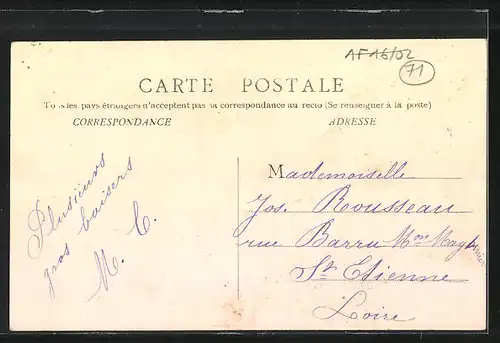 AF16/02
71
CARTE POSTALE
Tous les pays étrangers n'acceptent pas la correspondance au recto (Se renseigner à la poste)
CORRESPONDANCE
ADRESSE
Plusieurs
gros baisers
M. C.
Mademoiselle
Jos. Rousseau
rue Barra Mon
St Etienne
Loire